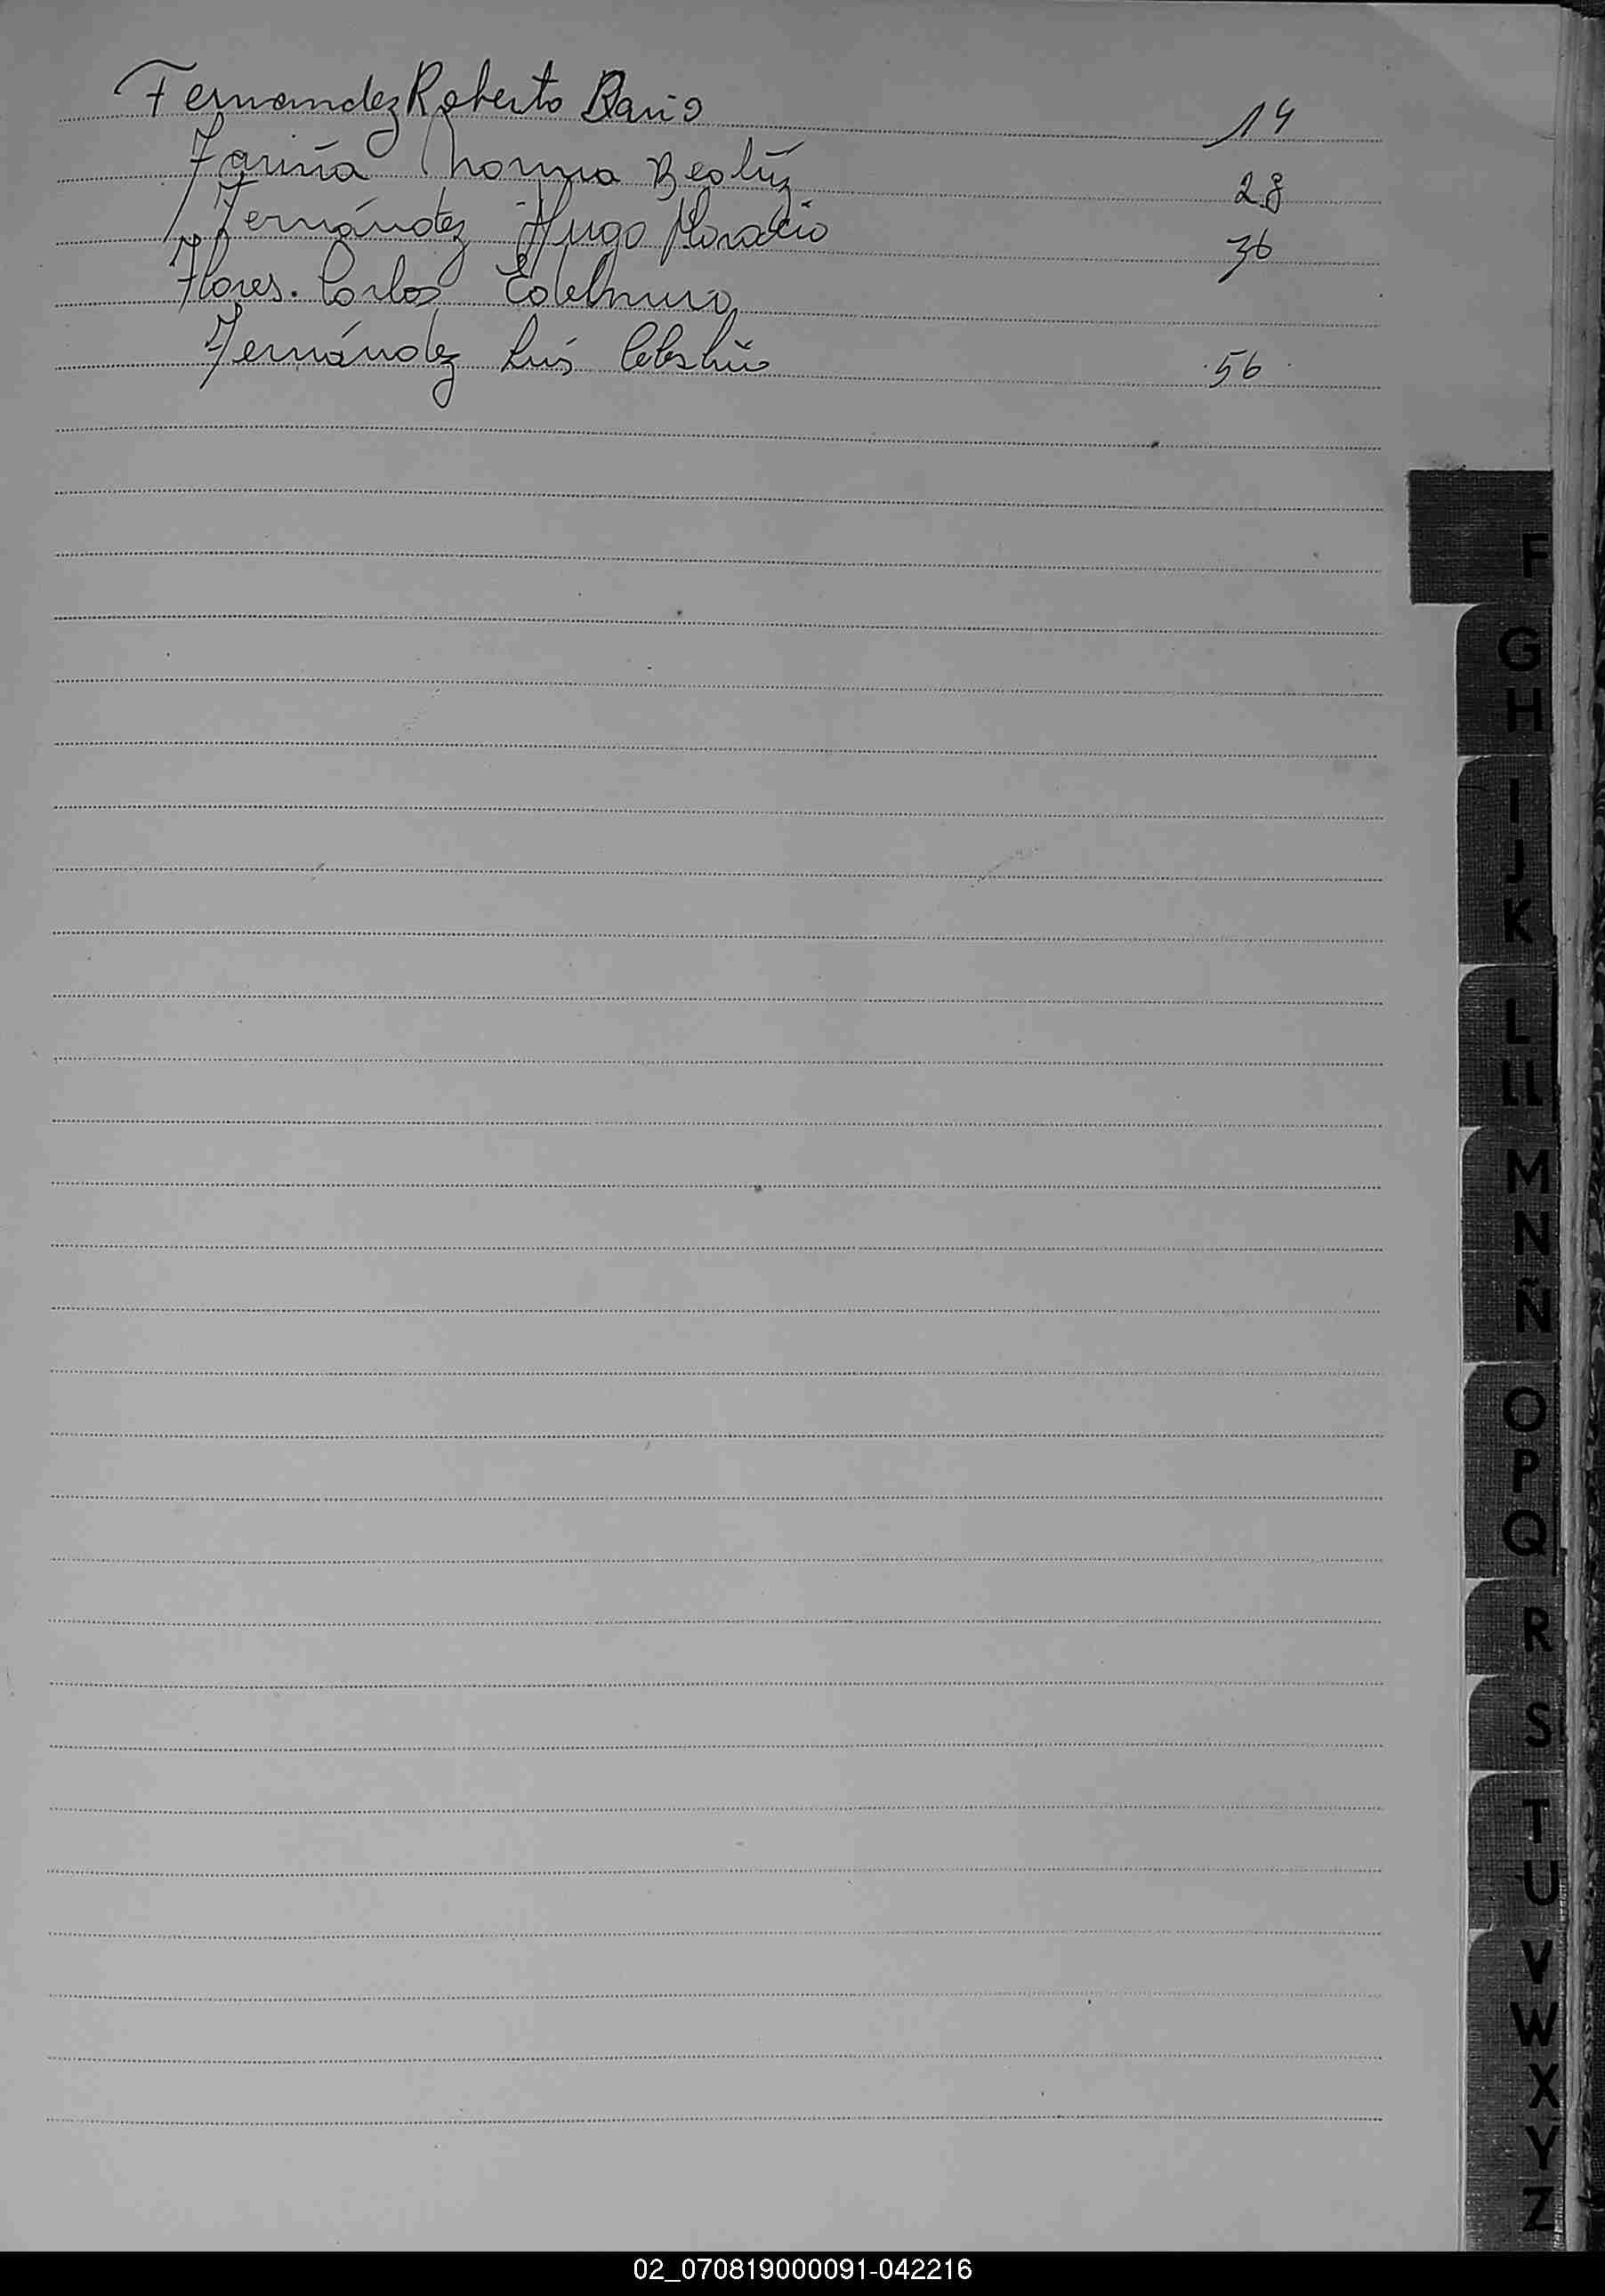 Fernandez Roberto Dario 14
Fariña Norma Beatriz 28
Fernández Hugo Horacio 36
Flores. Carlos Edelmiro
Fernández Luis Celestino 56
F
G
H
I
J
K
L
LL
M
N
Ñ
O
P
Q
R
S
T
U
V
W
X
Y
Z
02_070819000091-042216